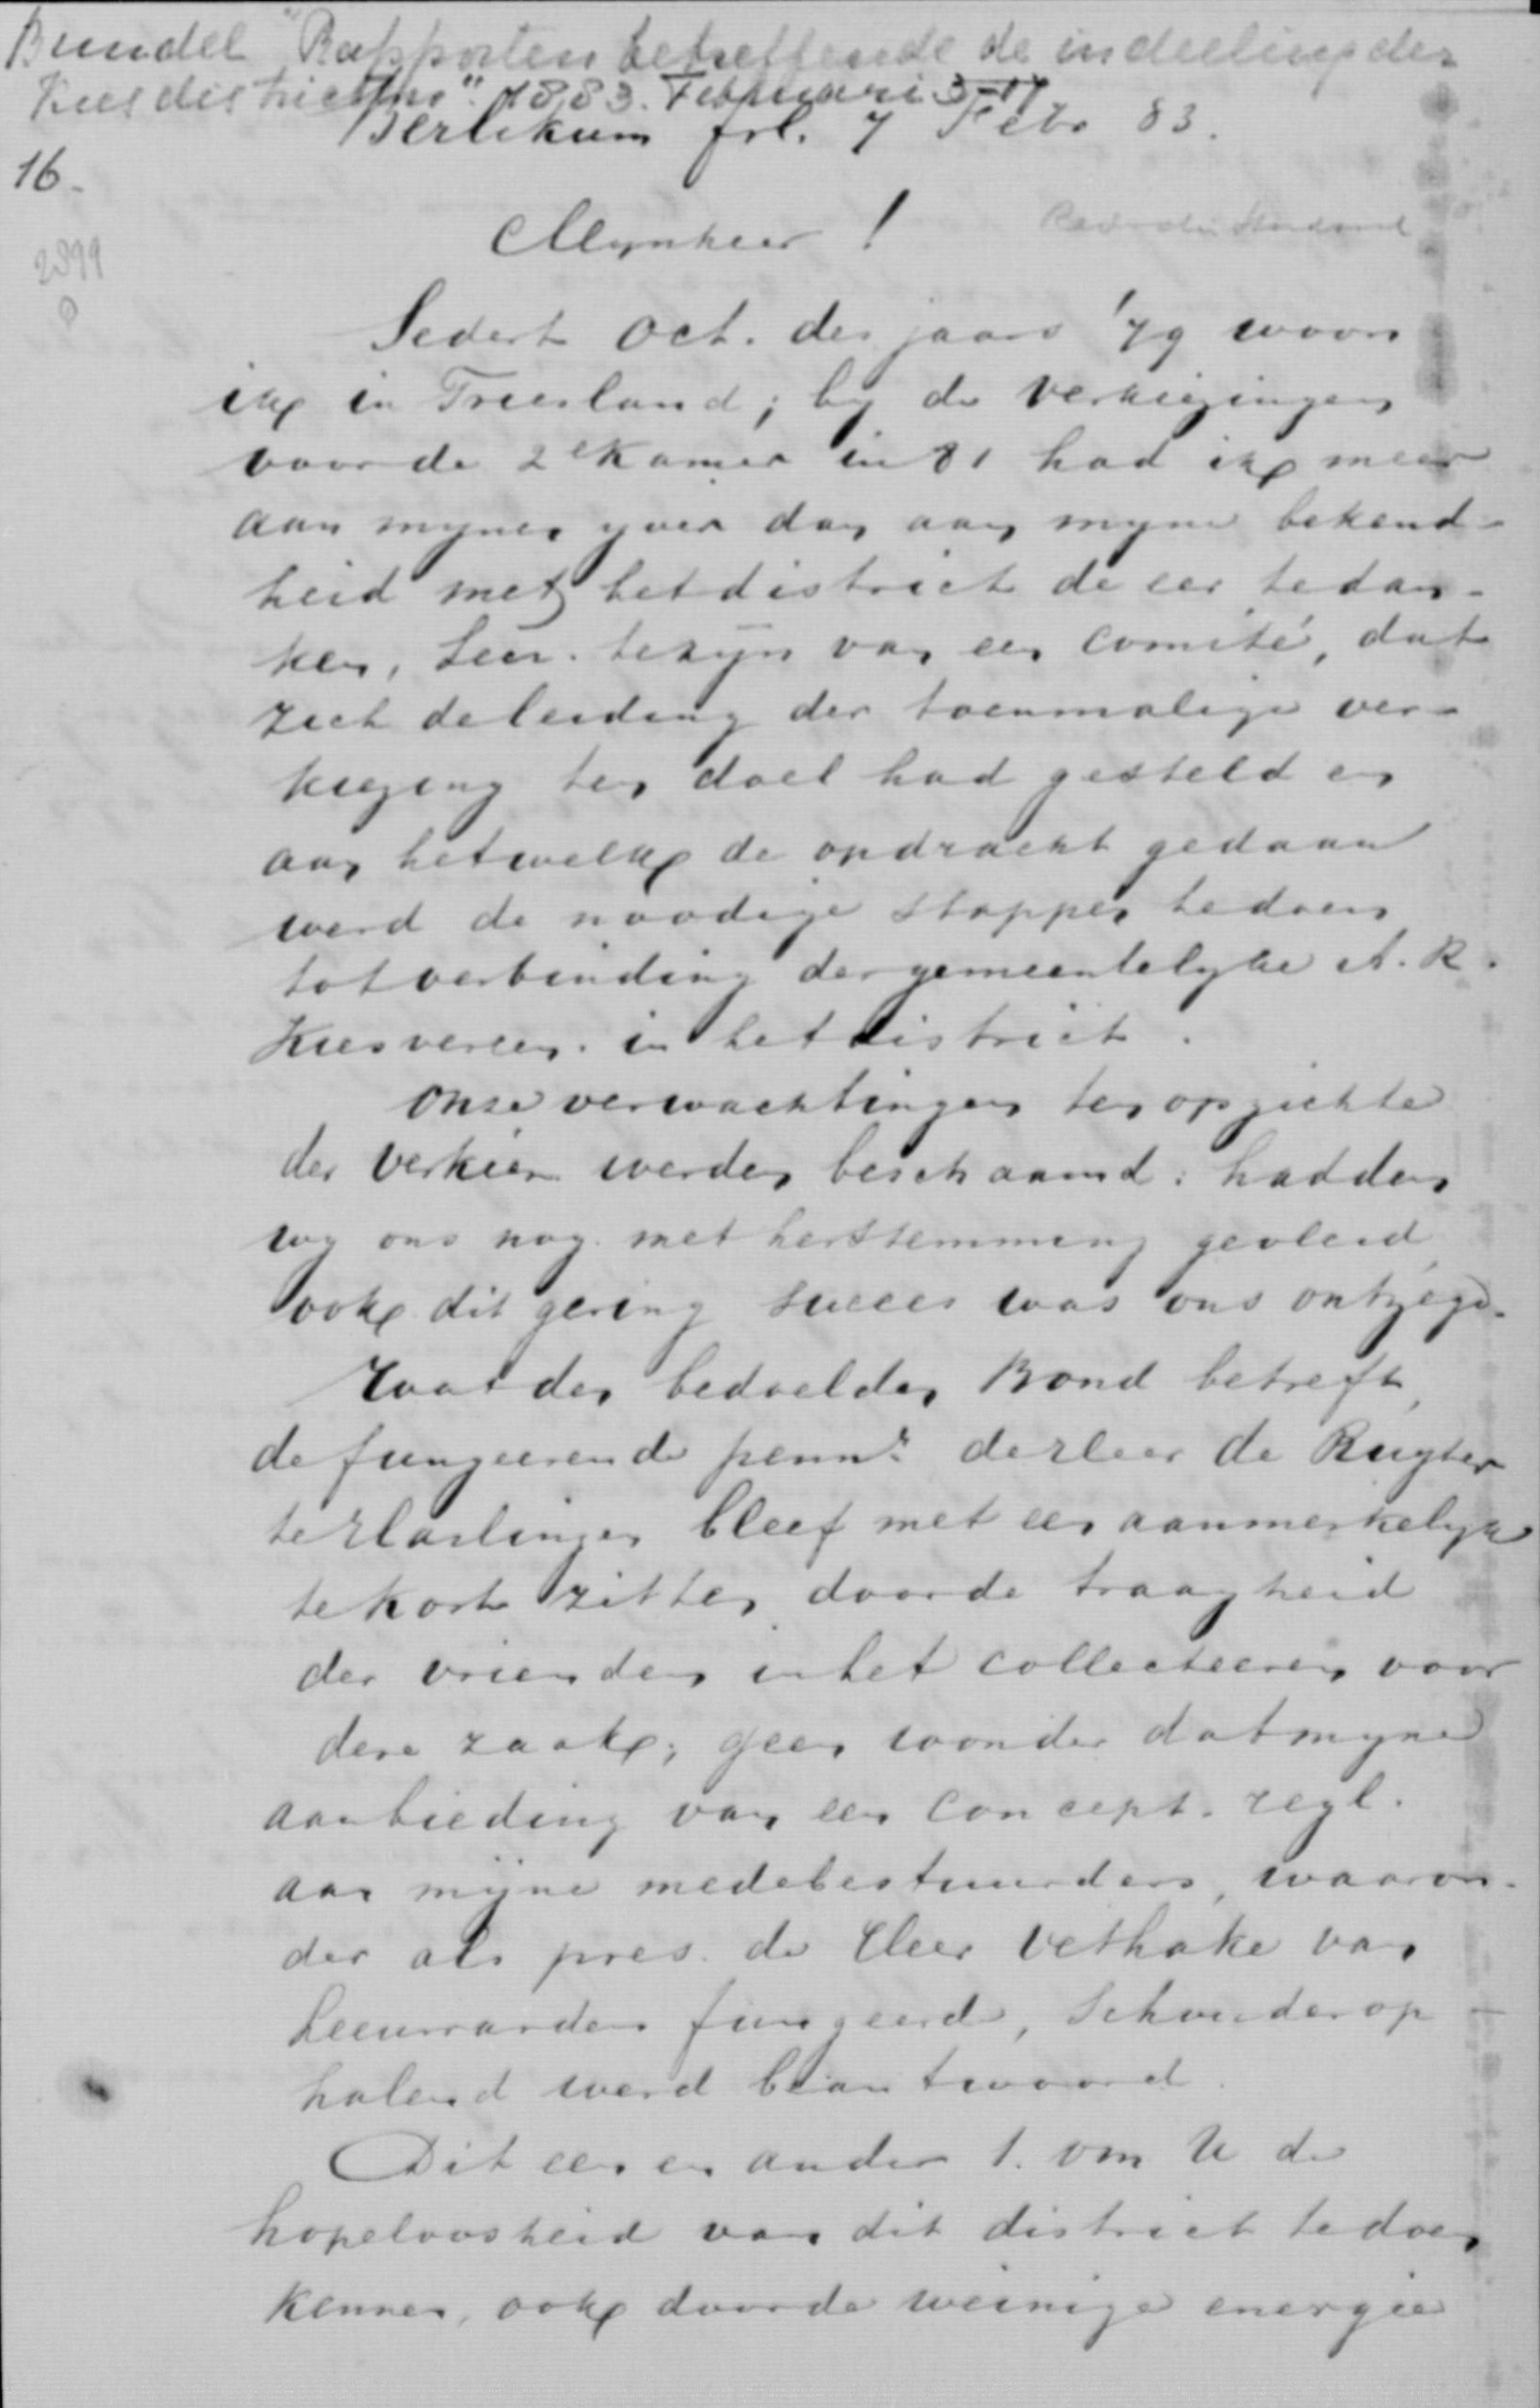 Bundel "Rapporten betreffende de indeeling der
Kiesdistricten". 1883. Februari 3-17
Berlikum frl. 7 Feb. 83.
16.
2899
Mynheer !
Sedert Oct. des jaars '79 woon
ik in Friesland; by de verkiezingen
voor de 2e Kamer in 81 had ik meer
aan mynen yver dan aan myne bekend-
heid met het district de eer te dan-
ken, Secr. te zyn van een Comité, dat
zich de leiding der toenmalige ver-
kiezing ten doel had gesteld en
aan hetwelk de opdracht gedaan
werd de noodige stappen te doen
tot verbinding der gemeentelyke A. R.
Kiesvereen. in het district.
Onze verwachtingen ten opzichte
der verkiez. werden beschaamd: hadden
wy ons nog met herstemming gevleid,
ook dit gering succes was ons ontzegd.
Wat den bedoelden Bond betreft,
de fungeerende penn.r de Heer de Ruyter
te Harlingen bleef met een aanmerkelyk
tekort zitten door de traagheid
der vrienden in het collecteeren voor
deze zaak; geen wonder dat myne
aanbieding van een Concept-regl.
aan myne medebestuurders, waaron-
der als pres. de Heer Vethake van
Leeuwarden fungeerde, Schouderop-
halend werd beantwoord.
Dit een en ander 1. om U de
hopeloosheid van dit district te doen
kennen, ook door de weinige energie